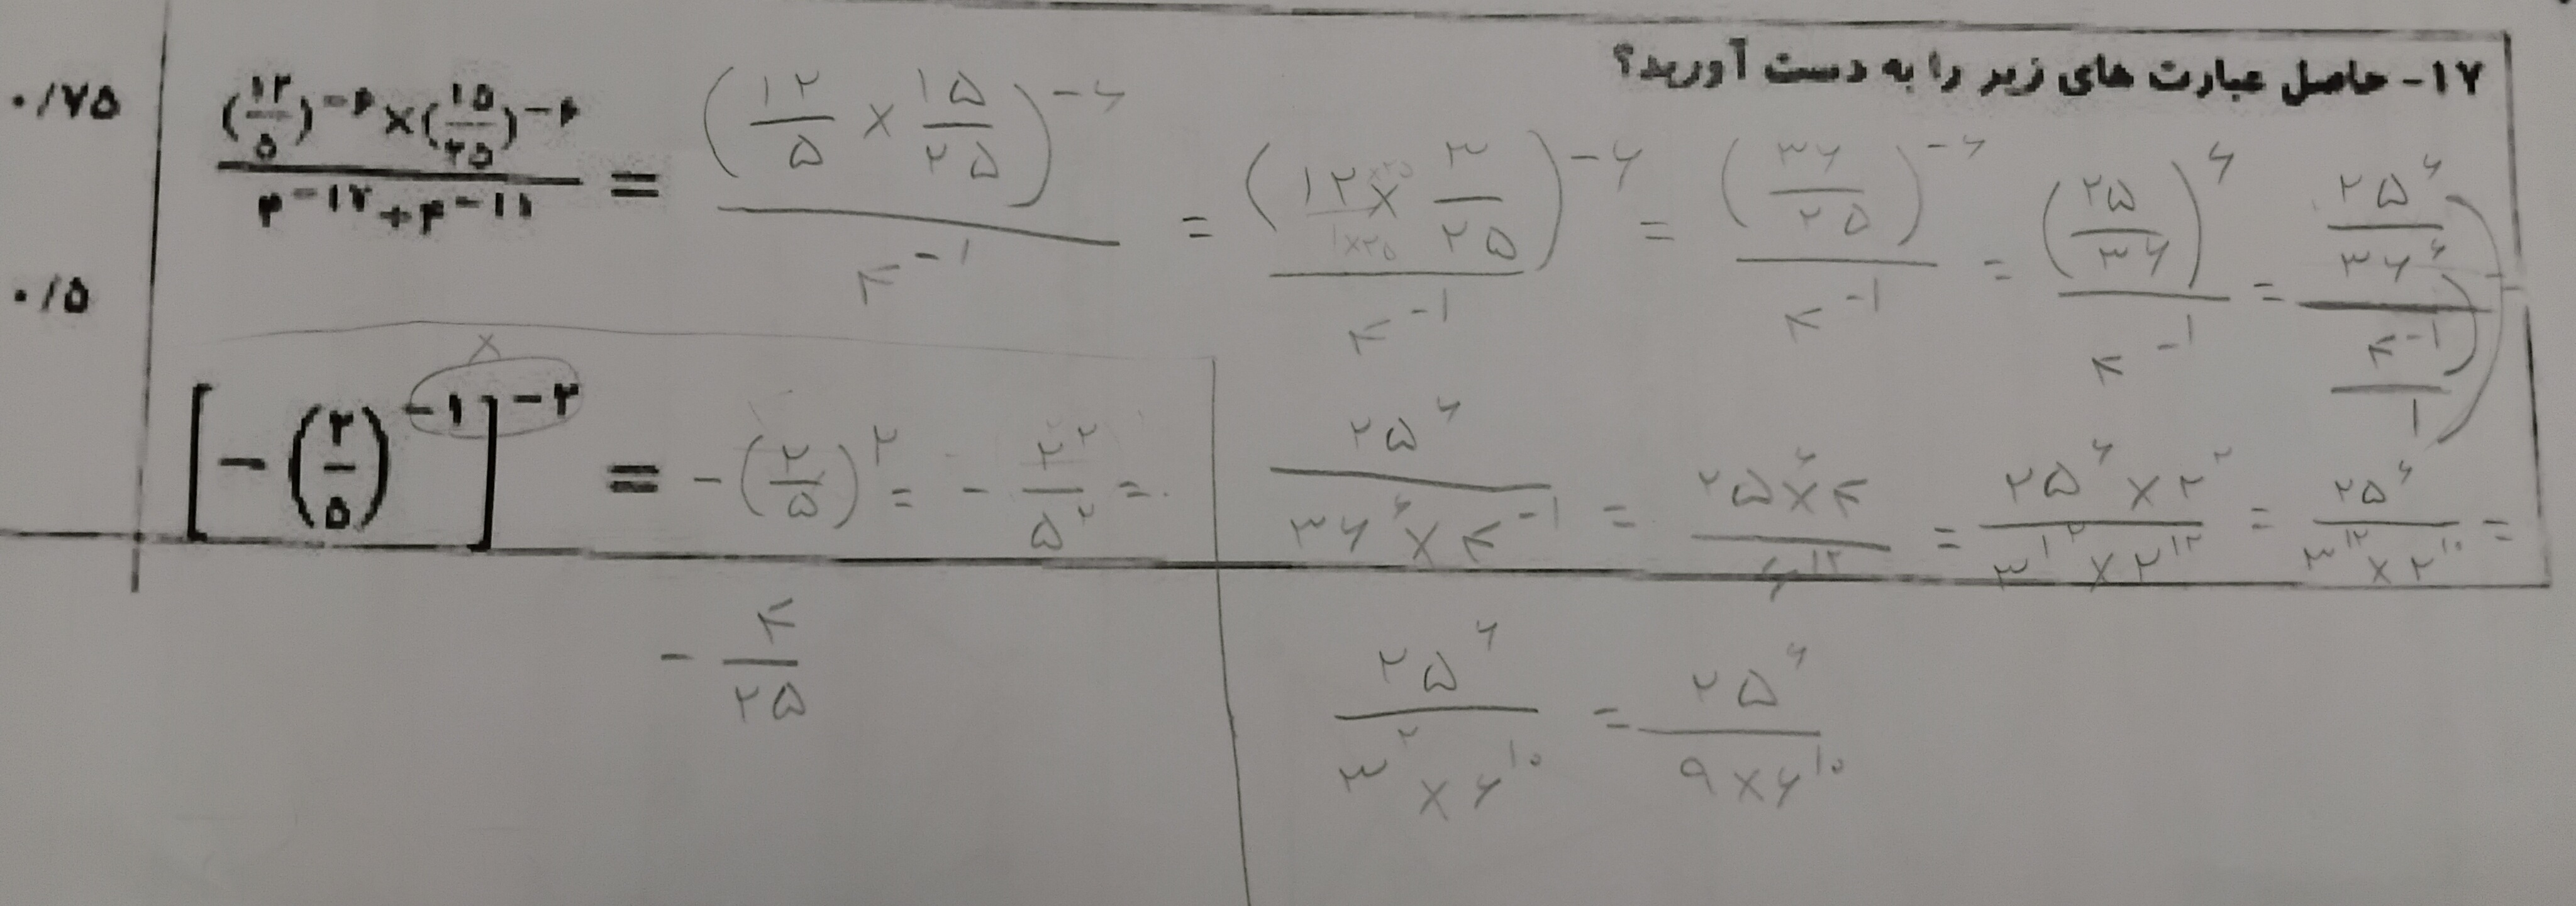 ۱۷- حاصل عبارت های زیر را به دست آورید؟
۰/۷۵
((۱۲/۵)^-۶ × (۱۵/۲۵)^-۶) / (۴^-۱۲ + ۴^-۱۱) = (۱۲/۵ × ۱۵/۲۵)^-۶ / ۴^-۱ = (۱۲ × ۳/۲۵)^-۶ / ۴^-۱ = (۳۶/۲۵)^-۶ / ۴^-۱ = (۲۵/۳۶)^۶ / ۴^-۱ = (۲۵^۶/۳۶^۶) / (۴^-۱/۱)
۲۵^۶ / (۳۶^۶ × ۴^-۱) = (۲۵^۶ × ۴) / ۶^۱۲ = (۲۵^۶ × ۲^۲) / (۳^۱۲ × ۲^۱۲) = ۲۵^۶ / (۳^۱۲ × ۲^۱۰) =
۲۵^۶ / (۳^۲ × ۶^۱۰) = ۲۵^۶ / (۹ × ۶^۱۰)
۰/۵
[-(۲/۵)^-۱]^-۲ = -(۲/۵)^۲ = - ۲^۲/۵^۲ =
- ۴/۲۵